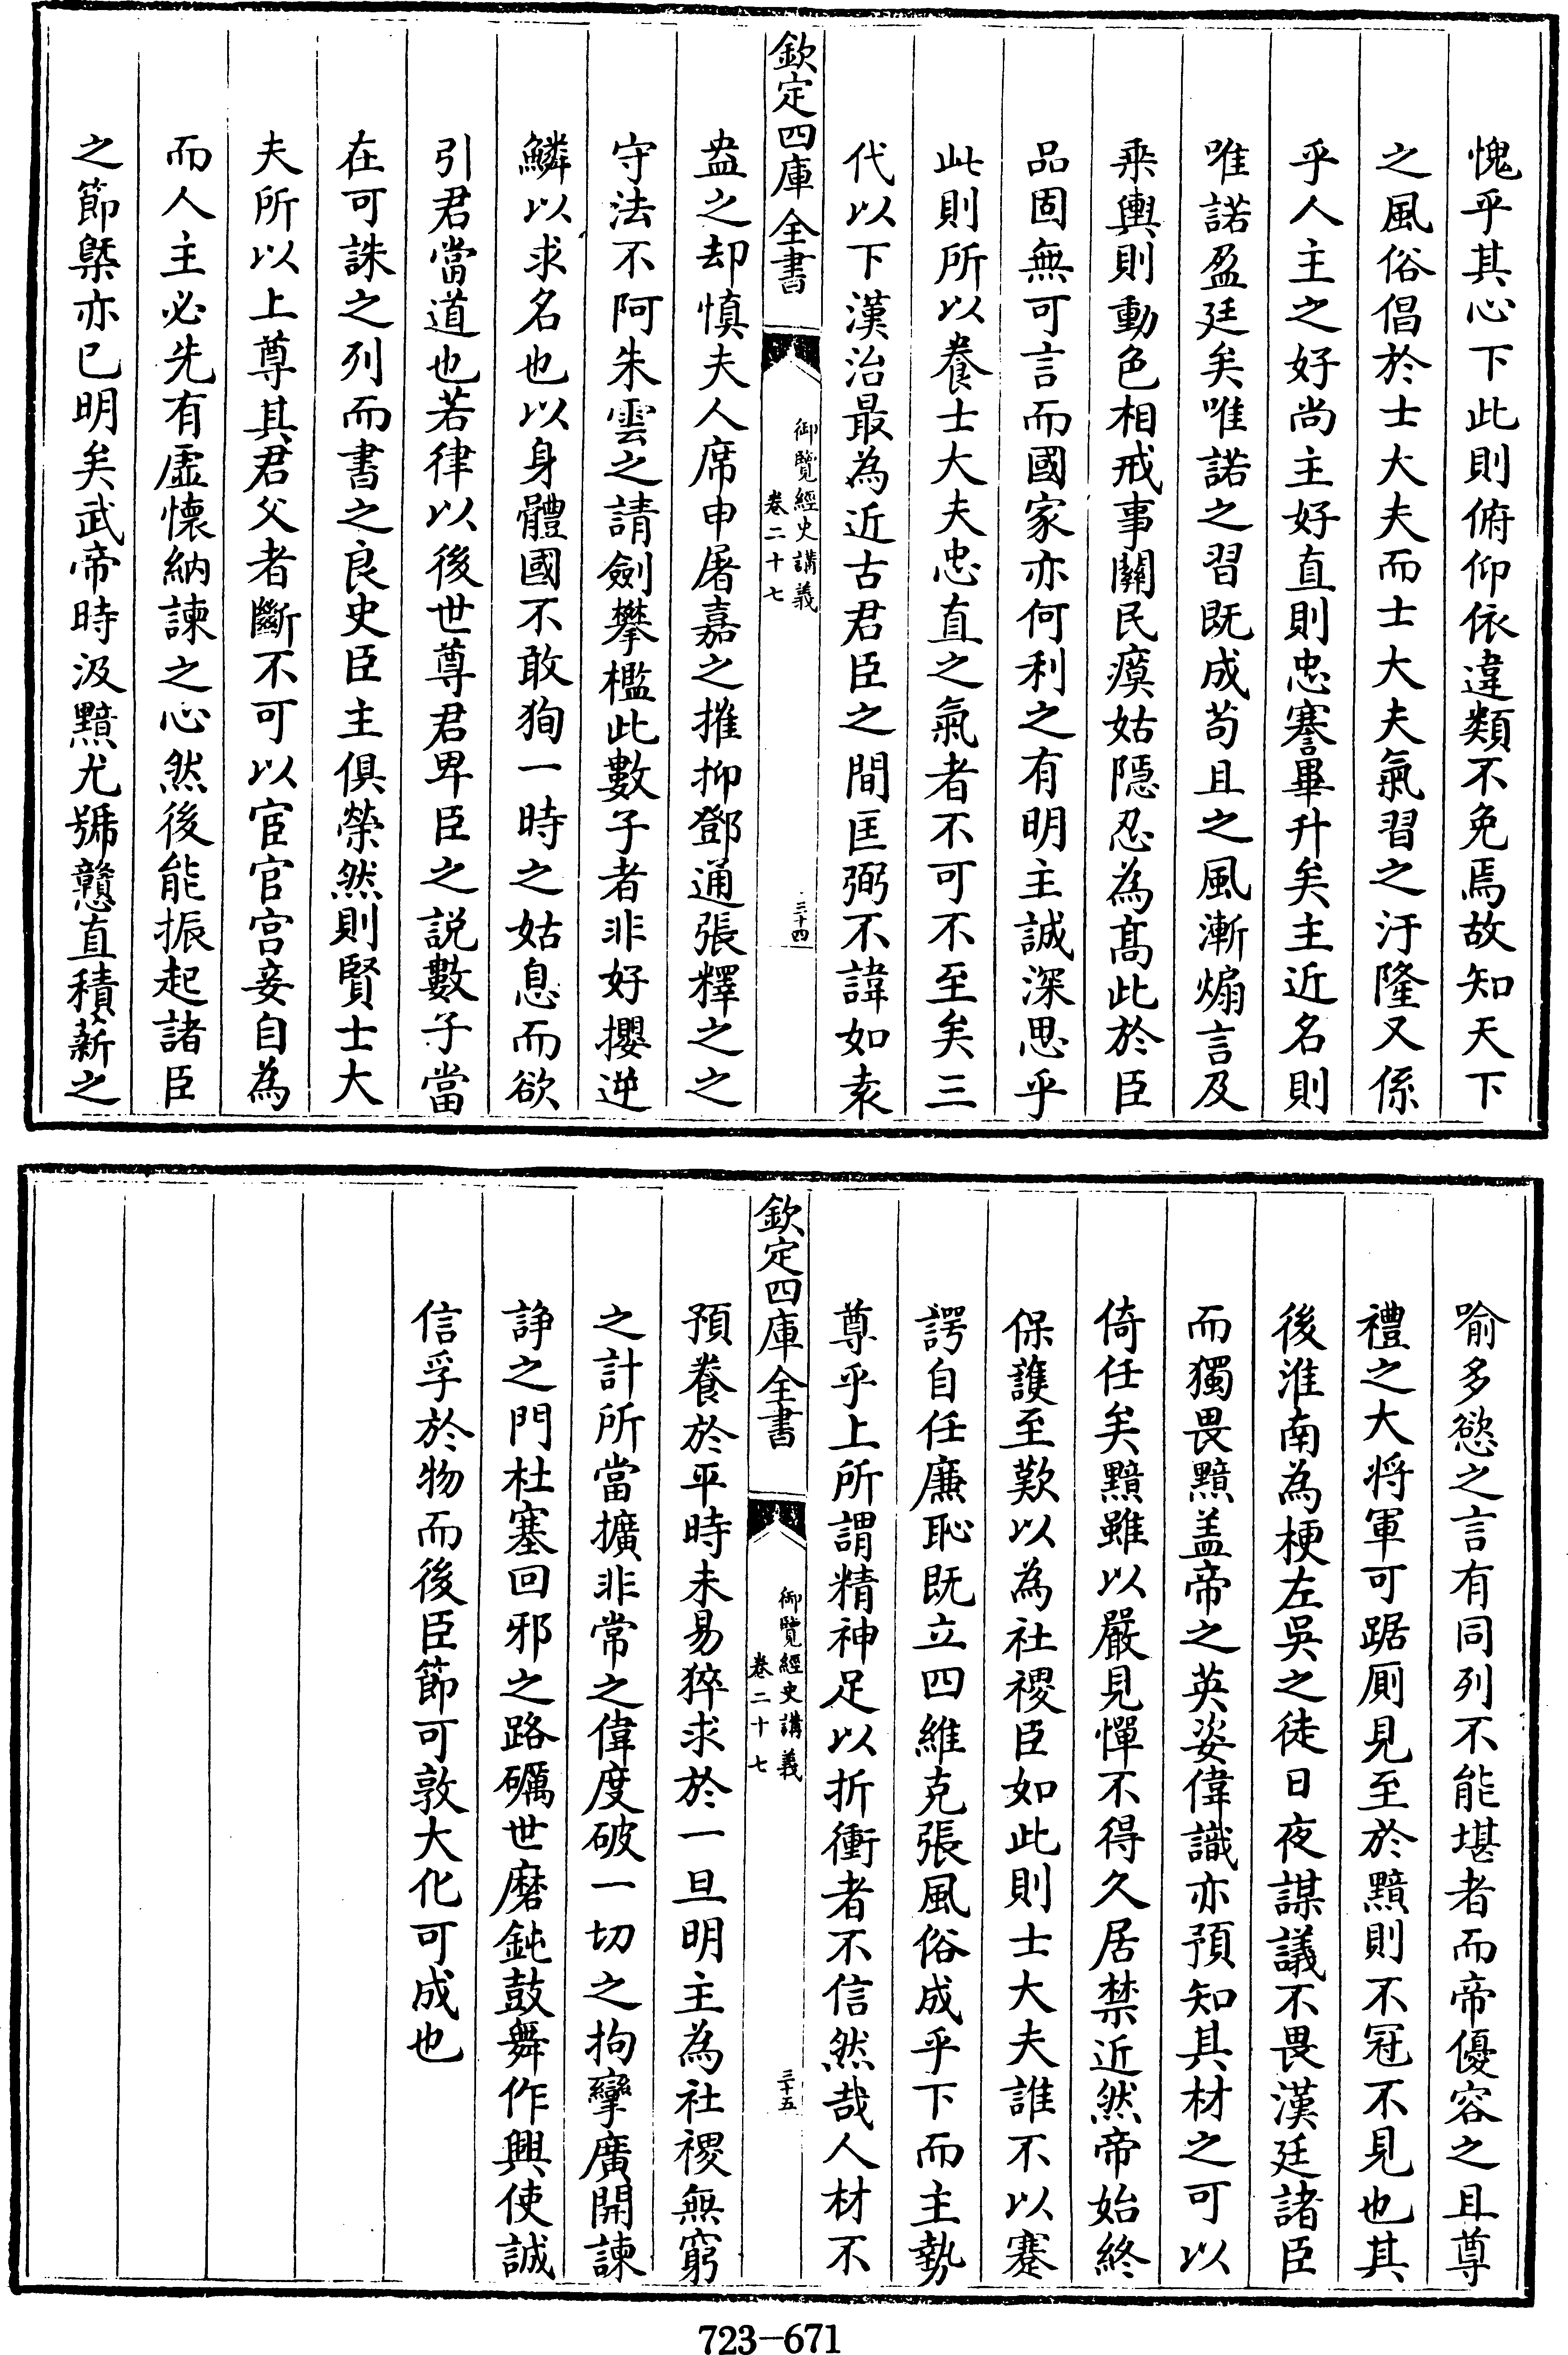 愧乎其心下此則俯仰依違類不免焉故知天下
之風俗倡於士大夫而士大夫氣習之汙隆又係
乎人主之好尚主好直則忠謇畢升矣主近名則
唯諾盈廷矣唯諾之習既成苟且之風漸煽言及
乘輿則動色相戒事關民瘼姑隱忍為髙此於臣
品固無可言而國家亦何利之有明主誠深思乎
此則所以養士大夫忠直之氣者不可不至矣三
代以下漢治最為近古君臣之間匡弼不諱如袁
欽定四庫全書
御覽經史講義
卷二十七
三十四
盎之却慎夫人席申屠嘉之摧抑鄧通張釋之之
守法不阿朱雲之請劍攀檻此數子者非好攖逆
鱗以求名也以身體國不敢狥一時之姑息而欲
引君當道也若律以後世尊君卑臣之説數子當
在可誅之列而書之良史臣主俱榮然則賢士大
夫所以上尊其君父者斷不可以宦官宫妾自為
而人主必先有虛懷納諫之心然後能振起諸臣
之節槩亦已明矣武帝時汲黯尤號戇直積薪之
喻多慾之言有同列不能堪者而帝優容之且尊
禮之大将軍可踞厠見至於黯則不冠不見也其
後淮南為梗左吳之徒日夜謀議不畏漢廷諸臣
而獨畏黯盖帝之英姿偉識亦預知其材之可以
倚任矣黯雖以嚴見憚不得久居禁近然帝始終
保護至歎以為社稷臣如此則士大夫誰不以蹇
諤自任廉恥既立四維克張風俗成乎下而主勢
尊乎上所謂精神足以折衝者不信然哉人材不
欽定四庫全書
御覽經史講義
卷二十七
三十五
預養於平時未易猝求於一旦明主為社稷無窮
之計所當擴非常之偉度破一切之拘攣廣開諫
諍之門杜塞回邪之路礪世磨鈍鼓舞作興使誠
信孚於物而後臣節可敦大化可成也
723-671